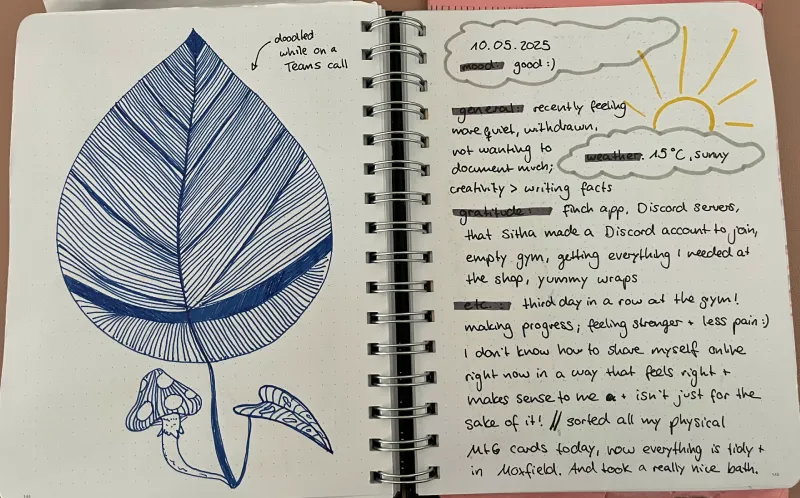 doodled
while on a
Teams call
10.05.2025
mood: good :)
general: recently feeling
more quiet, withdrawn,
not wanting to
document much;
creativity > writing facts
weather: 15°C, sunny
gratitude: finch app, Discord servers,
that Sitha made a Discord account to join,
empty gym, getting everything I needed at
the shop, yummy wraps
etc.: third day in a row at the gym!
making progress; feeling stronger + less pain :)
I don't know how to share myself online
right now in a way that feels right +
makes sense to me + isn't just for the
sake of it! // sorted all my physical
MtG cards today, now everything is tidy +
in Moxfield. And took a really nice bath.